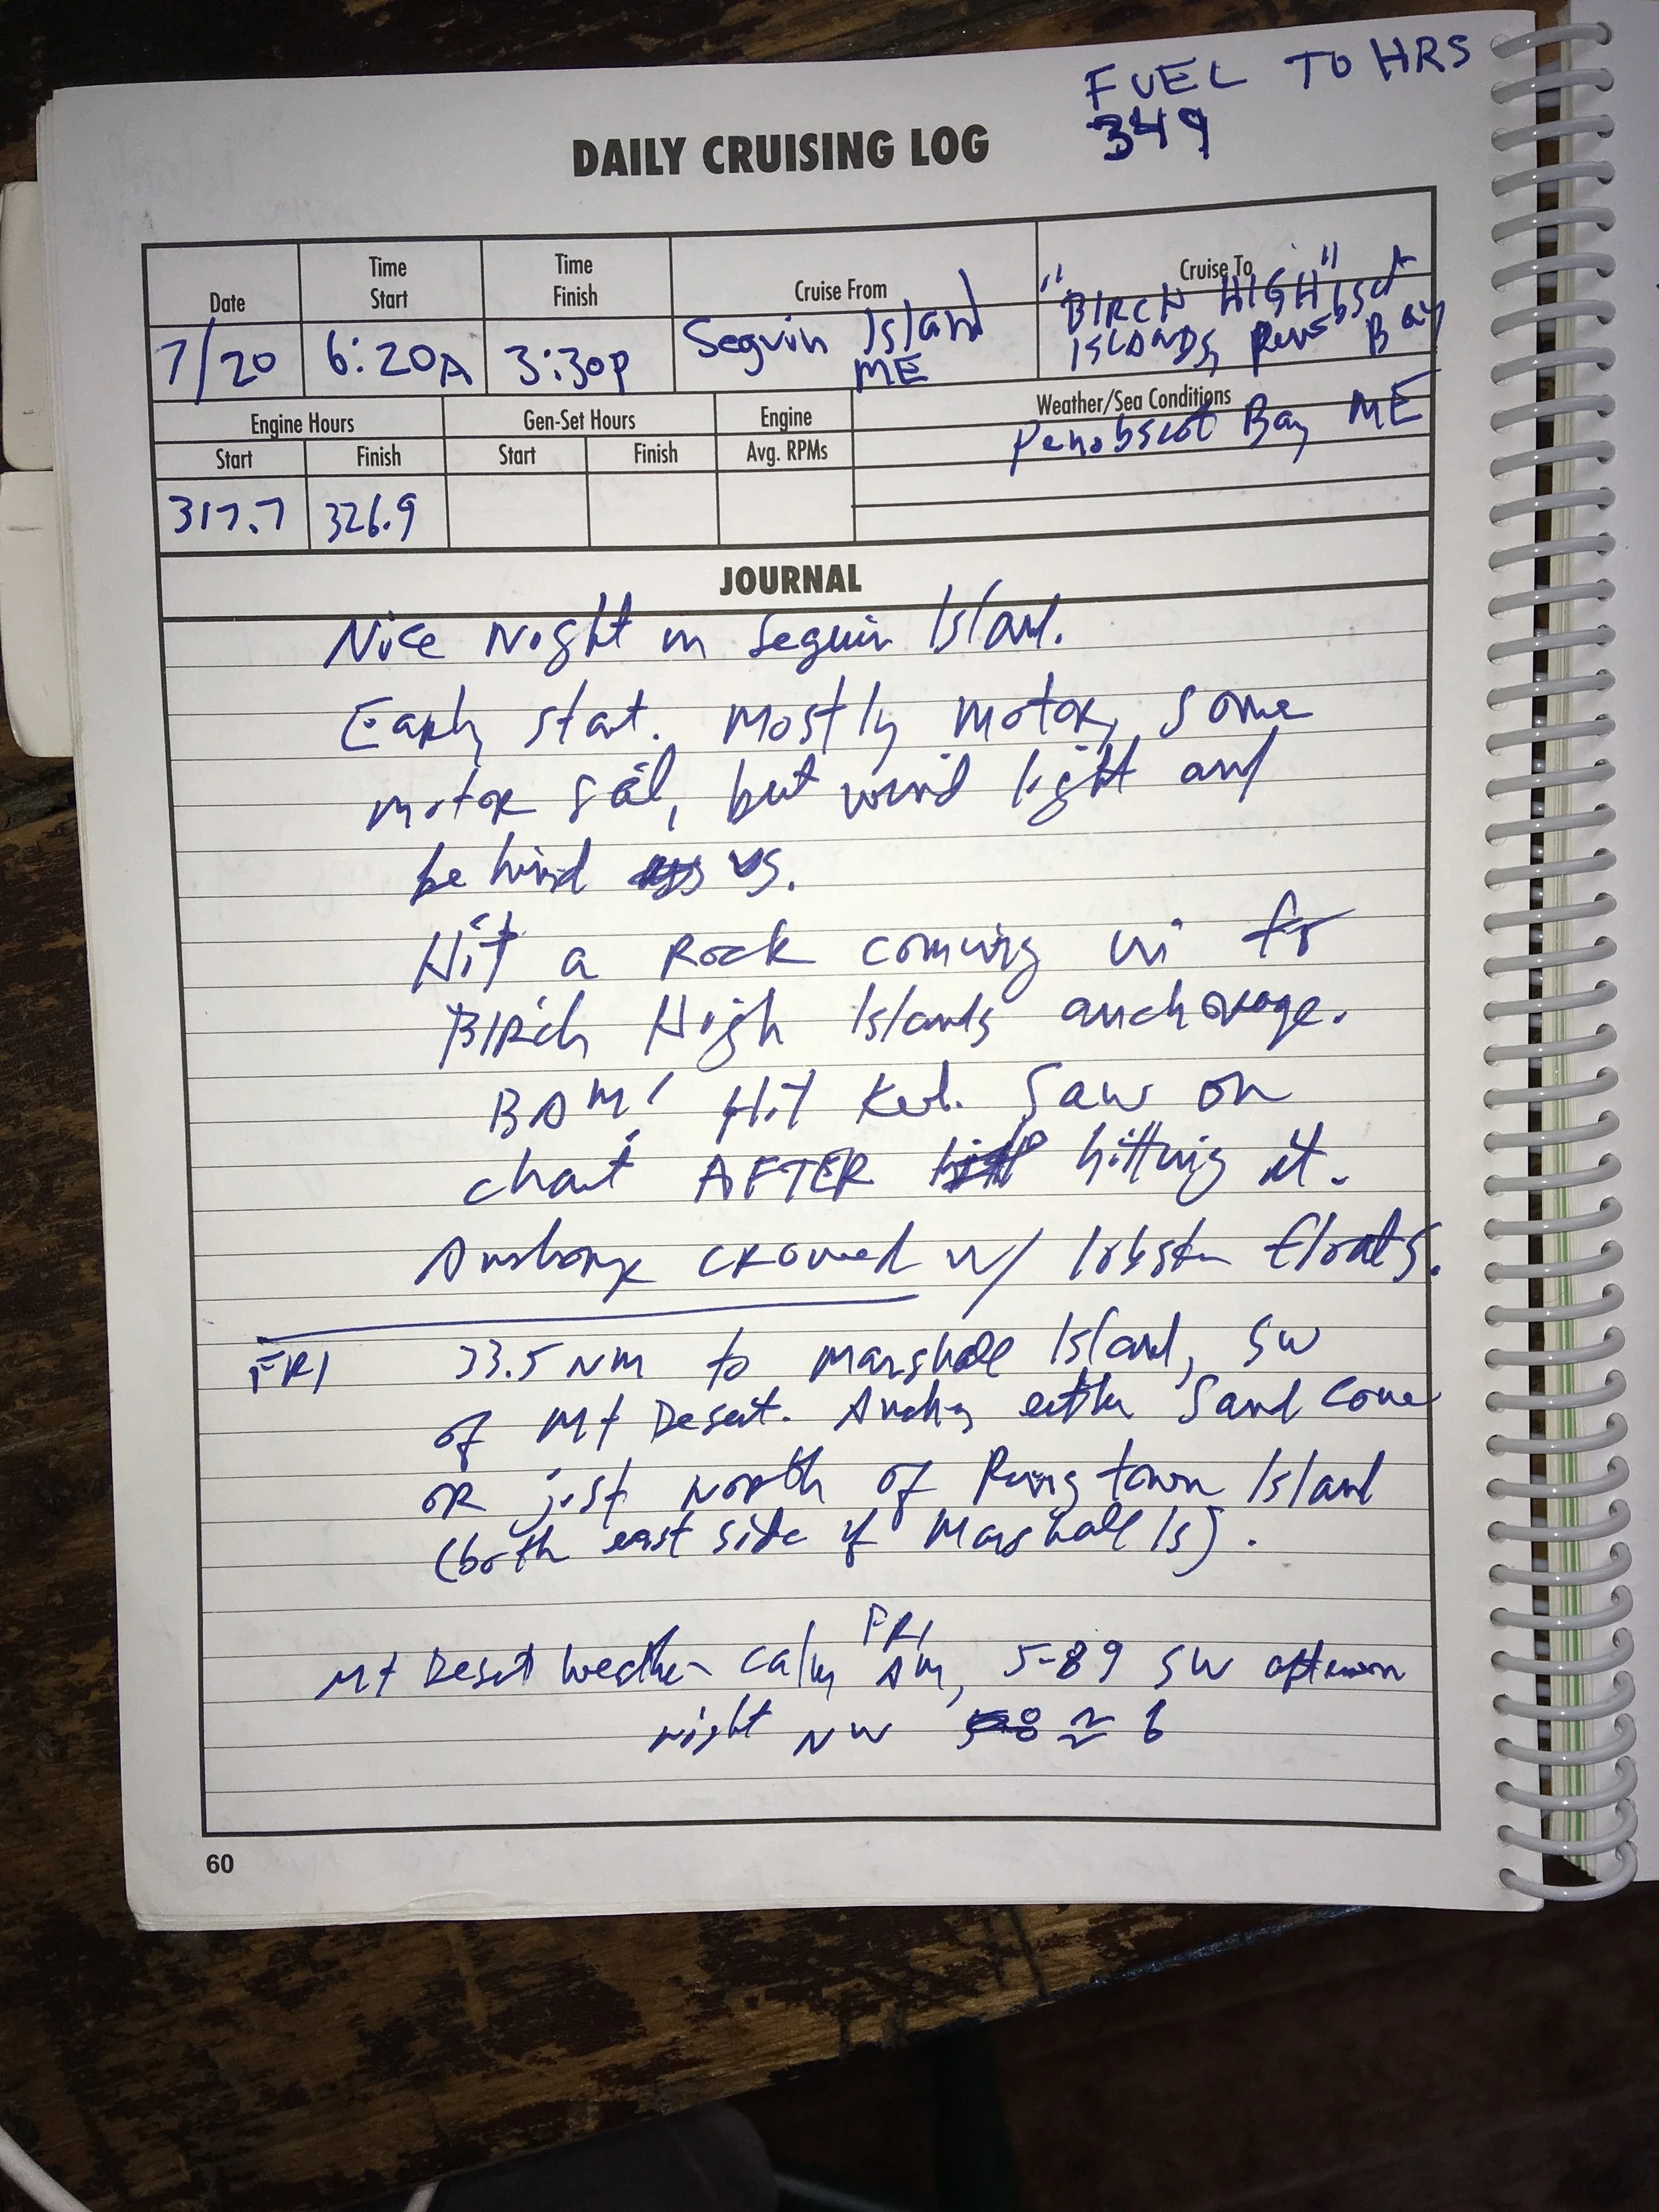 FUEL TO HRS
349
DAILY CRUISING LOG
Date
Time Start
Time Finish
Cruise From
Cruise To
7/20
6:20A
3:30P
Seguin Island
ME
"BIRCH HIGH"
ISLANDS, Penobsct Bay
Engine Hours
Gen-Set Hours
Engine
Weather/Sea Conditions
Penobscot Bay ME
Start
Finish
Start
Finish
Avg. RPMs
317.7
326.9
JOURNAL
Nice Night in Seguin Island.
Early start. Mostly motor, some
motor sail, but wind light and
behind us.
Hit a Rock coming in for
BIRch High Islands anchorage.
BAM! Hit Keel. Saw on
chart AFTER hitting it.
Anchorage CROWDED w/ lobster floats.
FRI 33.5 NM to Marshall Island, SW
of Mt Desert. Anchor either Sand Cove
OR just North of Ringtown Island
(both east side of Marshall Is).
FRI
Mt Desert Weather calm AM, 5-89 SW afternoon
night NW ≈ 6
60